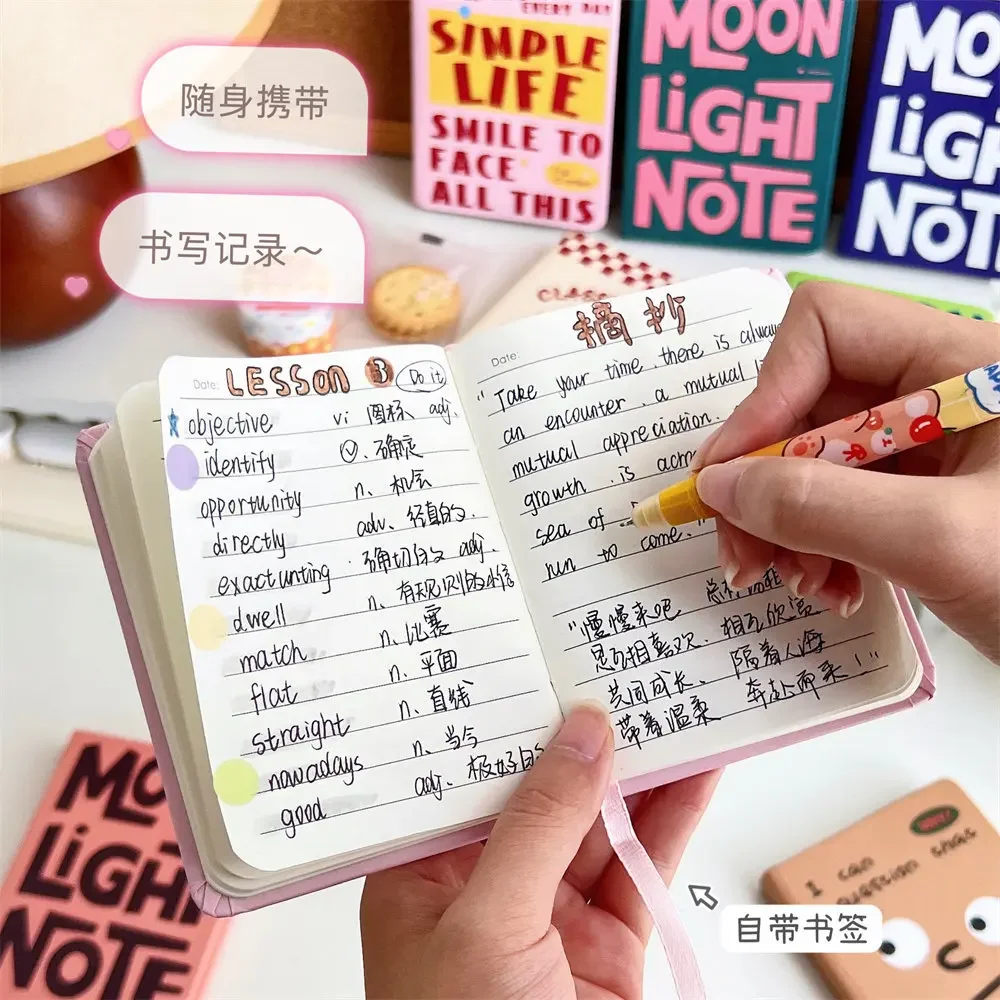 随身携带
书写记录～
EVERY DAY
SIMPLE
LIFE
SMILE TO
FACE
ALL THIS
MOON
LIGHT
NOTE
MO
LIG
NOT
CLASS
Date: LESSON 3 Do it
objective vi 图标 adj.
identify 确定
opportunity n. 机会
directly adv. 径直的.
exactunting 确切的 adj.
dwell n. 有规则的
match n. 比赛
flat n. 平面
straight n. 直线
nowadays n. 当今
good adj. 极好的
Date: 摘抄
"Take your time. there is always
an encounter. a mutual
mutual appreciation.
growth. is acro
sea of
run to come."
"慢慢来吧
是互相喜欢. 相互欣赏
共同成长. 隔着人海
带着温柔 奔赴而来!"
MO
LIGH
NOTE
I can
question
自带书签